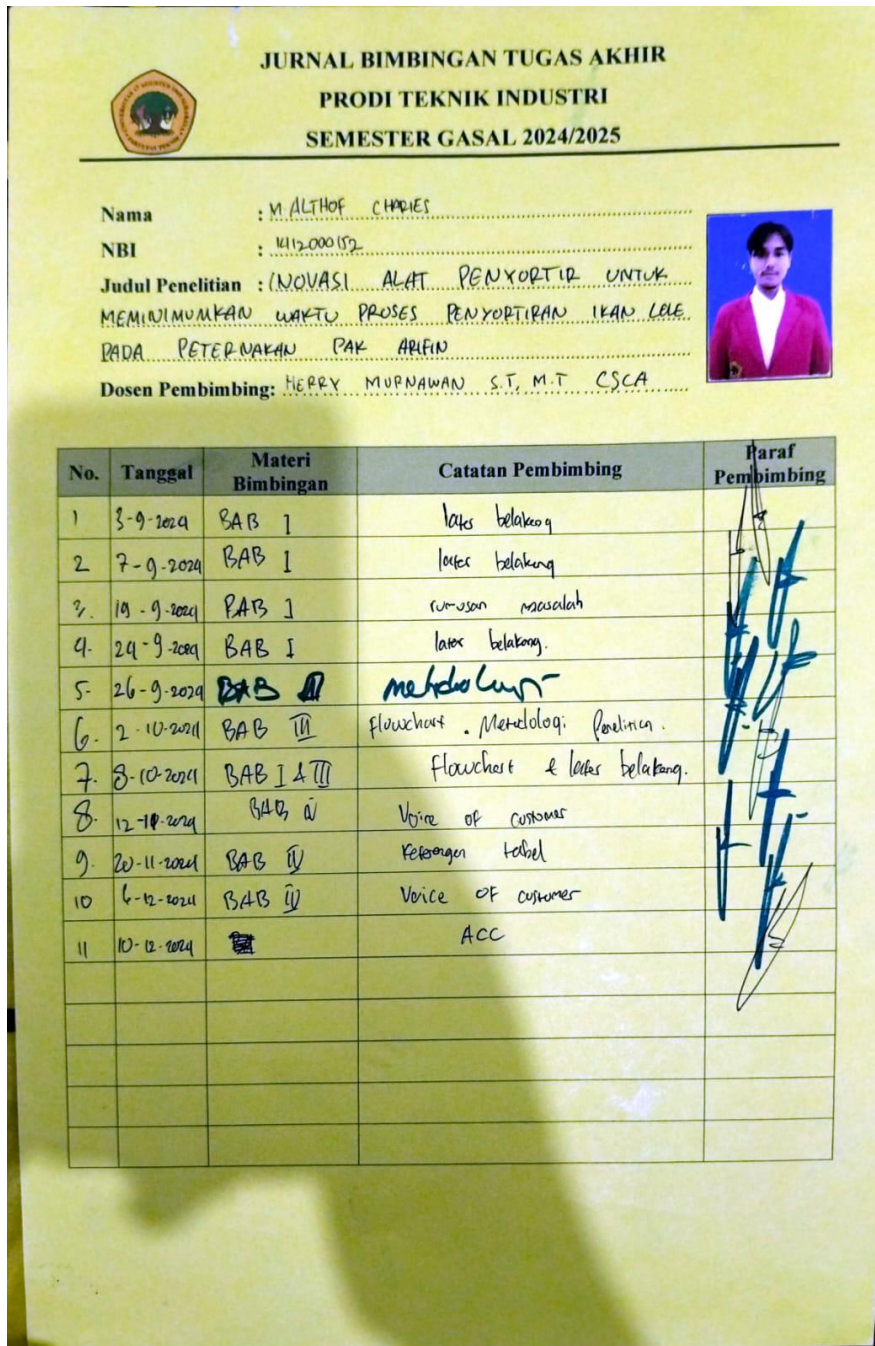 JURNAL BIMBINGAN TUGAS AKHIR
PRODI TEKNIK INDUSTRI
SEMESTER GASAL 2024/2025
Nama : M. ALTHOF CHARIES
NBI : 1412000152
Judul Penelitian : INOVASI ALAT PENYORTIR UNTUK
MEMINIMUMKAN WAKTU PROSES PENYORTIRAN IKAN LELE
PADA PETERNAKAN PAK ARIFIN
Dosen Pembimbing: HERRY MURNAWAN S.T, M.T CSCA
No. Tanggal Materi Bimbingan Catatan Pembimbing Paraf Pembimbing
1 3-9-2024 BAB I latar belakang
2 7-9-2024 BAB I latar belakang
3. 19-9-2024 BAB I rumusan masalah
4. 24-9-2024 BAB I latar belakang.
5. 26-9-2024 BAB metodologi
6. 2-10-2024 BAB III flowchart. Metodologi Penelitian.
7. 8-10-2024 BAB I & III flowchart & latar belakang.
8. 12-11-2024 BAB IV Voice of customer
9. 20-11-2024 BAB IV Keterangan tabel
10 6-12-2024 BAB IV Voice OF customer
11 10-12-2024 ACC